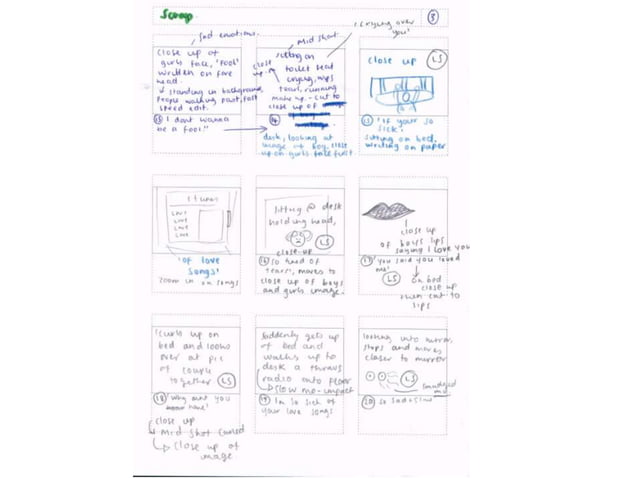 Scrap
③
Sad emotions.
Close up of
girls face, 'Fool'
written on fore
head.
standing in background,
People walking past, fast
speed edit.
⑬ I dont wanna
be a fool."
mid shot
'crying over
you'
close
up.
sitting on
toilet seat
crying, wips
tears, running
make up. - cut to
close up of
⑭
desk, looking at
image of boy. close
up on girls face first.
close up
LS
⑮ 'If your so
sick.'
sitting on bed.
writing on paper
itunes
LOVE
LOVE
LOVE
LOVE
'of love
songs'
zoom in on songs
sitting @ desk
holding head,
LS
close-up
⑯ 'so full of
tears', moves to
close up of boys
and girls image.
close up
of boys lips
saying I love you
⑰ 'you said you loved
me'
LS
on bed
close up
then cut to
lips
curls up on
bed and looks
over at pic
of couple
together
LS
⑱ 'Why aint you
here'
close up
Mid shot
close up of
image
Suddenly gets up
of bed and
walks up to
desk & throws
radio onto floor
slow mo - impact
⑲ 'Im so sick of
your love songs
looking into mirror,
stops and moves
closer to mirror
LS
smudged
⑳ so sad + slow